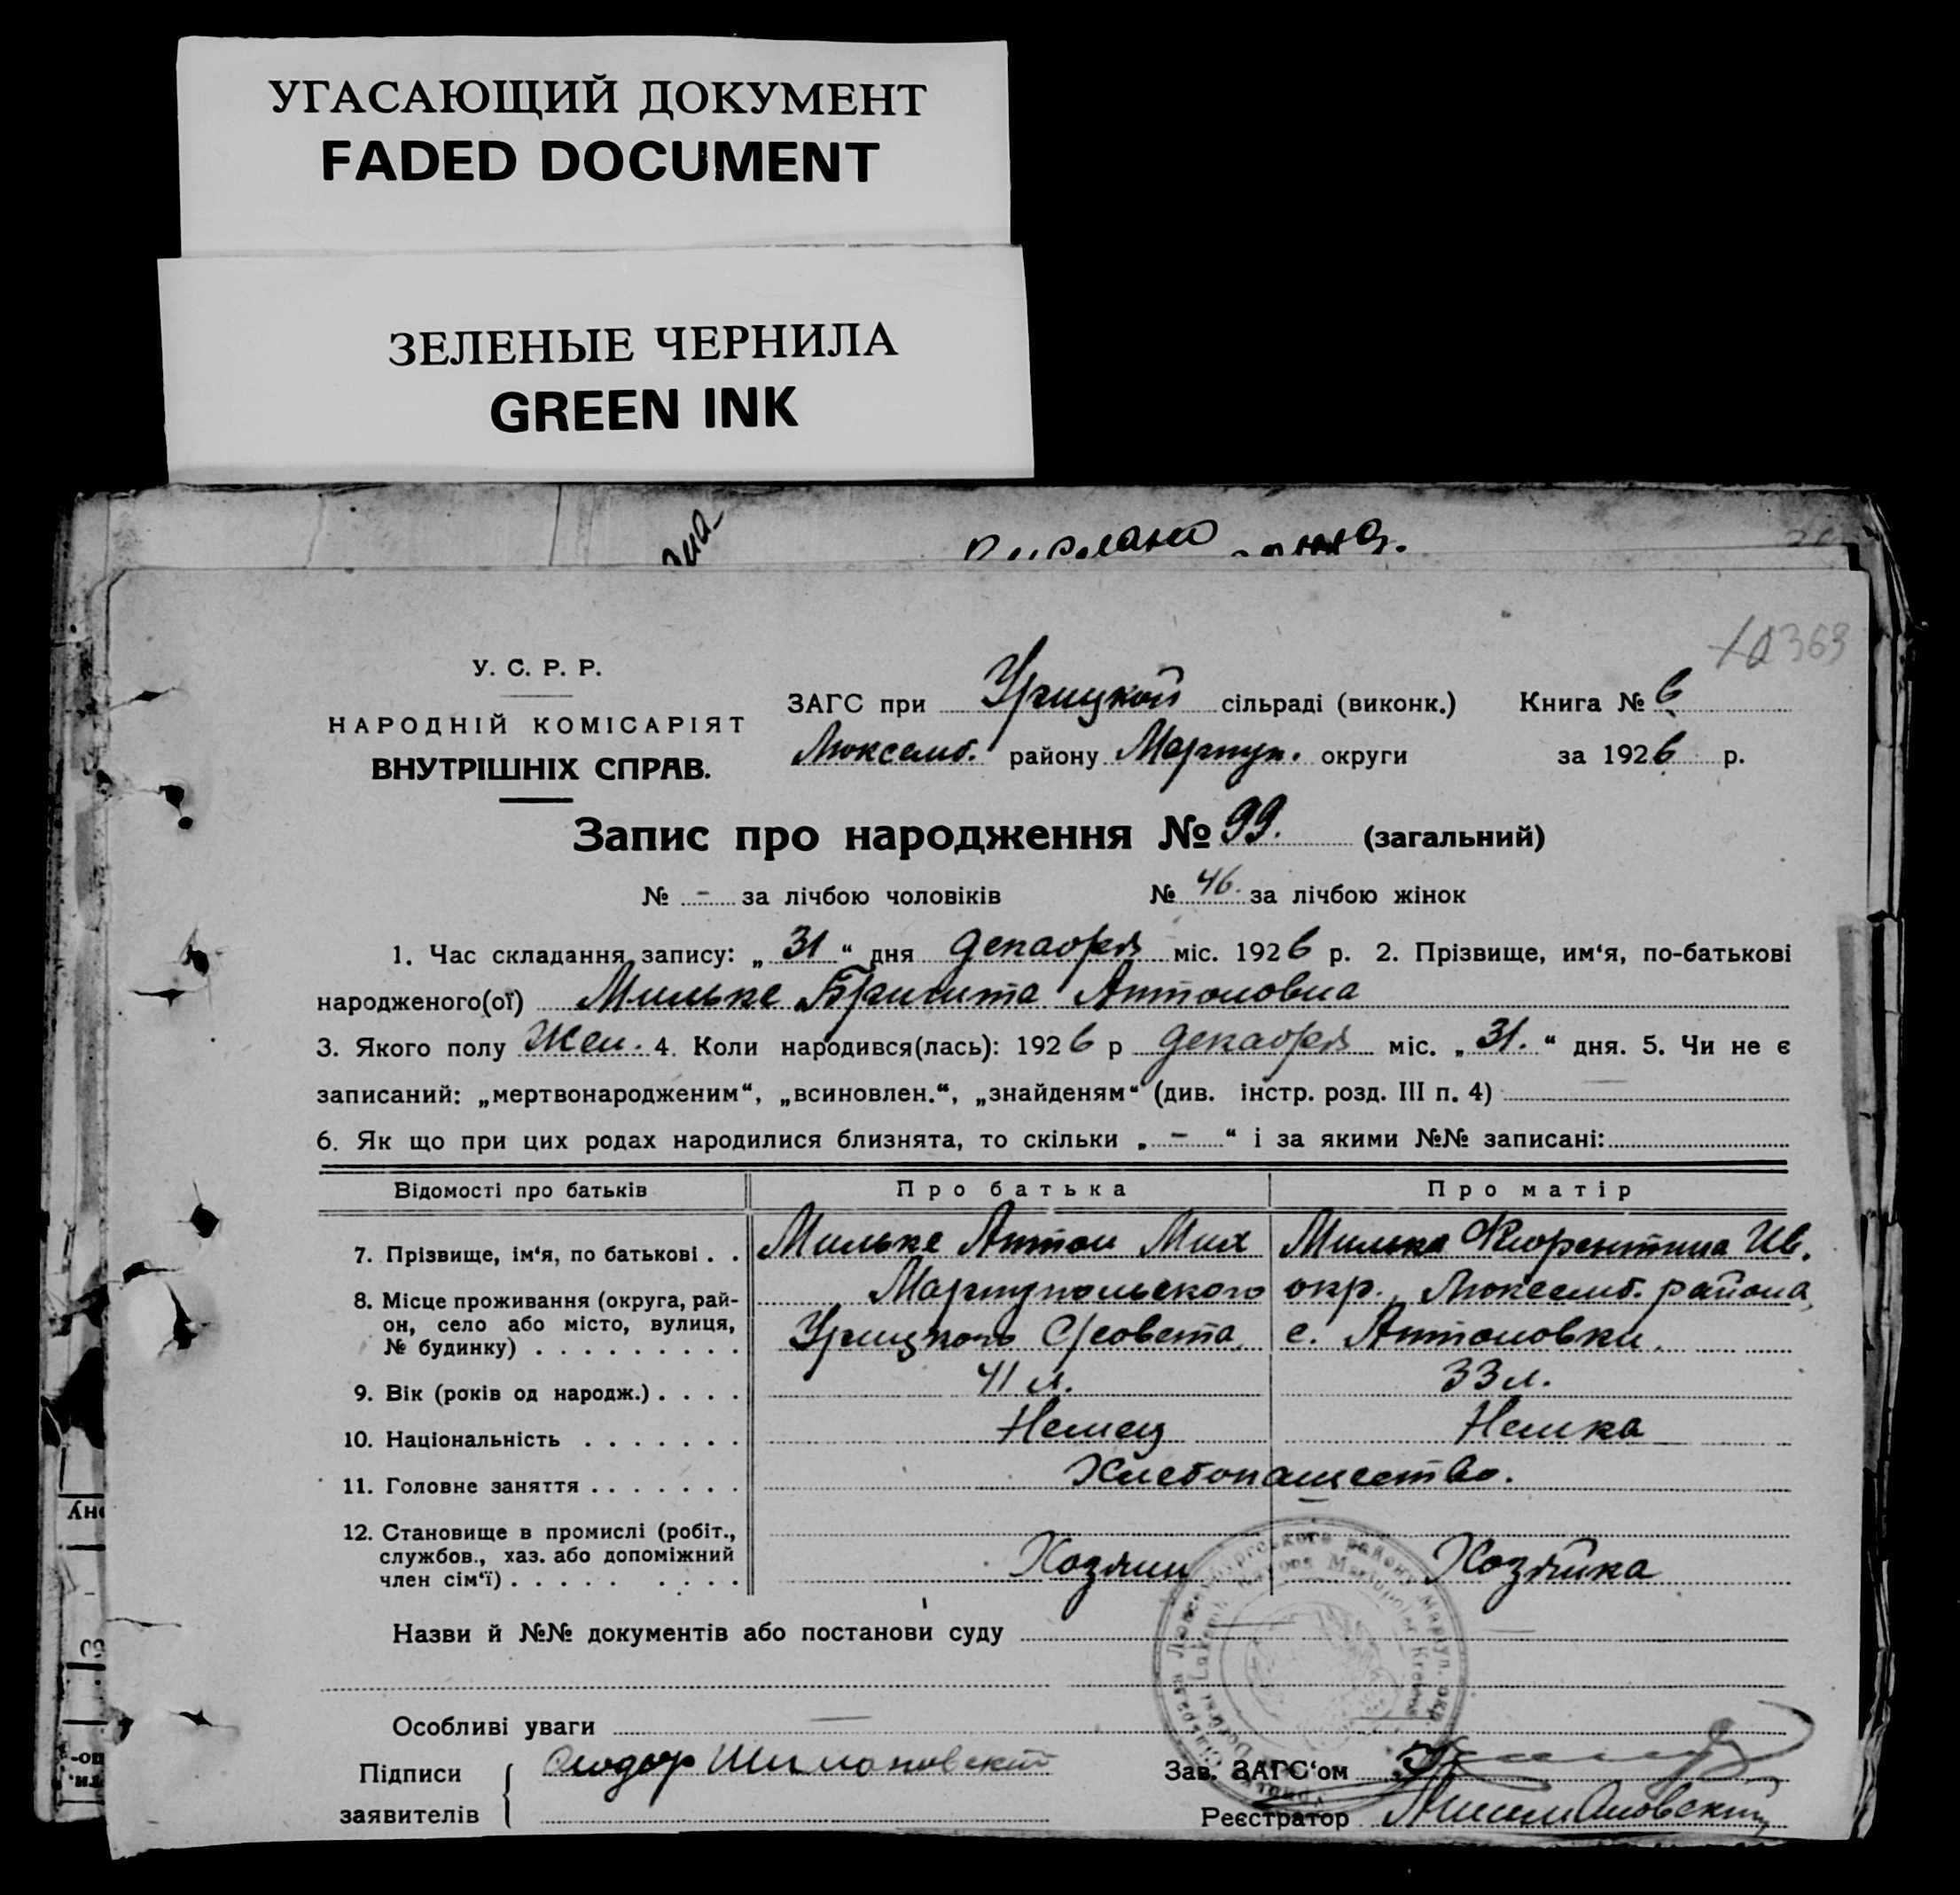 УГАСАЮЩИЙ ДОКУМЕНТ
FADED DOCUMENT
ЗЕЛЕНЫЕ ЧЕРНИЛА
GREEN INK
363
У. С. Р. Р.
НАРОДНІЙ КОМІСАРІЯТ
ВНУТРІШНІХ СПРАВ.
ЗАГС при Урицкой сільраді (виконк.) Книга № 6
Люксемб. району Мариуп. округи за 1926 р.
Запис про народження № 99. (загальний)
№ - за лічбою чоловіків № 46. за лічбою жінок
1. Час складання запису: „31“ дня декабря міс. 1926 р. 2. Прізвище, им‘я, по-батькові
народженого(ої) Мильке Бригита Антоновна
3. Якого полу Жен. 4. Коли народився(лась): 1926 р декабря міс. „31.“ дня. 5. Чи не є
записаний: „мертвонародженим“, „всиновлен.“, „знайденям“ (див. інстр. розд. III п. 4)
6. Як що при цих родах народилися близнята, то скільки „ - “ і за якими №№ записані:
Відомості про батьків Про батька Про матір
7. Прізвище, ім‘я, по батькові . . Мильке Антон Мих Милька Флорентина Ив.
8. Місце проживання (округа, рай- Мариупольского окр. Люксемб. района,
он, село або місто, вулиця, Урицкого С/совета с. Антоновки.
№ будинку) . . . . . . . . .
9. Вік (років од народж.) . . . . 41 л. 33 л.
10. Національність . . . . . . . Немец Немка
11. Головне заняття . . . . . . . Хлебопашество.
12. Становище в промислі (робіт.,
службов., хаз. або допоміжний Хозяин Хозяйка
член сім‘ї) . . . . . . . . .
Назви й №№ документів або постанови суду
Особливі уваги
Підписи
заявителів
Зав. ЗАГС‘ом
Реєстратор